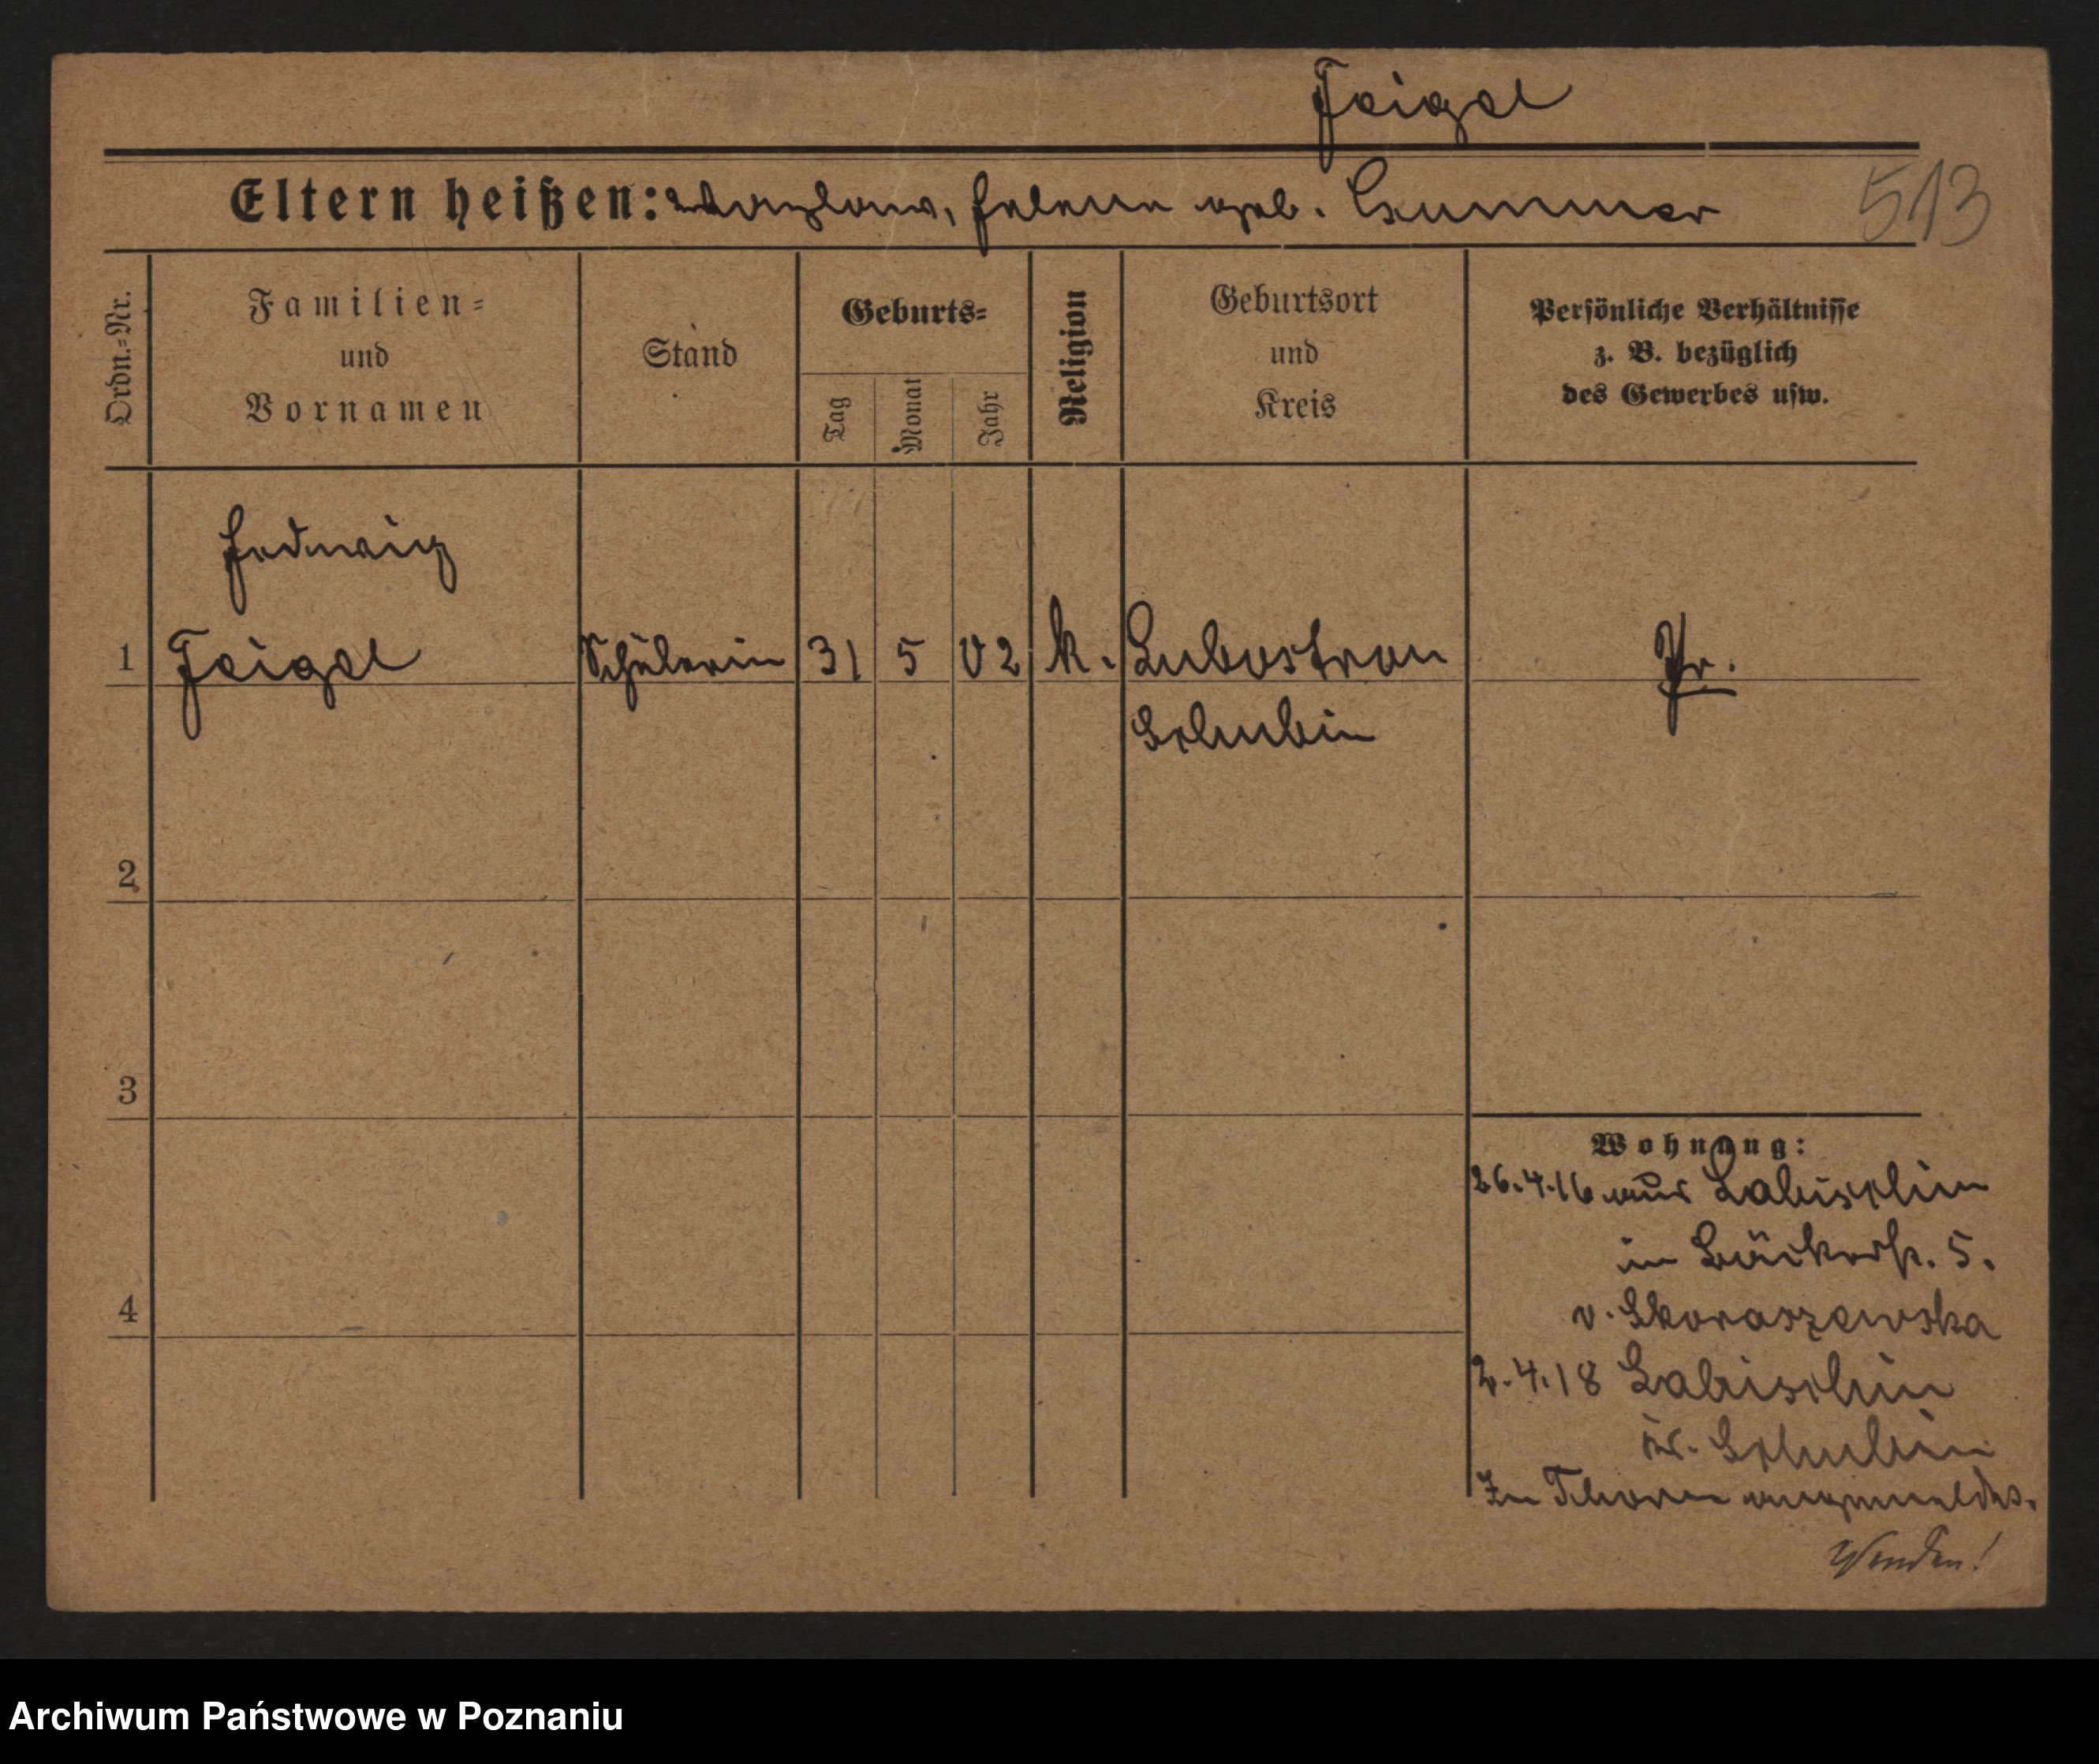 Feigel
Eltern heißen: Wazlaw, Helene geb. Cummer
513
Ordn.-Nr.
Familien-
und
Vornamen
Stand
Geburts-
Tag
Monat
Jahr
Religion
Geburtsort
und
Kreis
Persönliche Verhältnisse
z. B. bezüglich
des Gewerbes usw.
Hedwig
1 Feigel Schülerin 31 5 02 k. Lubostron Pr.
Schubin
2
3
4
Wohnung:
26.4.16 aus Labischin
in Bäckerstr. 5.
v. Skoraszewska
2.4.18 Labischin
Kr. Schubin
In Thorn angemeldet.
Wenden!
Archiwum Państwowe w Poznaniu